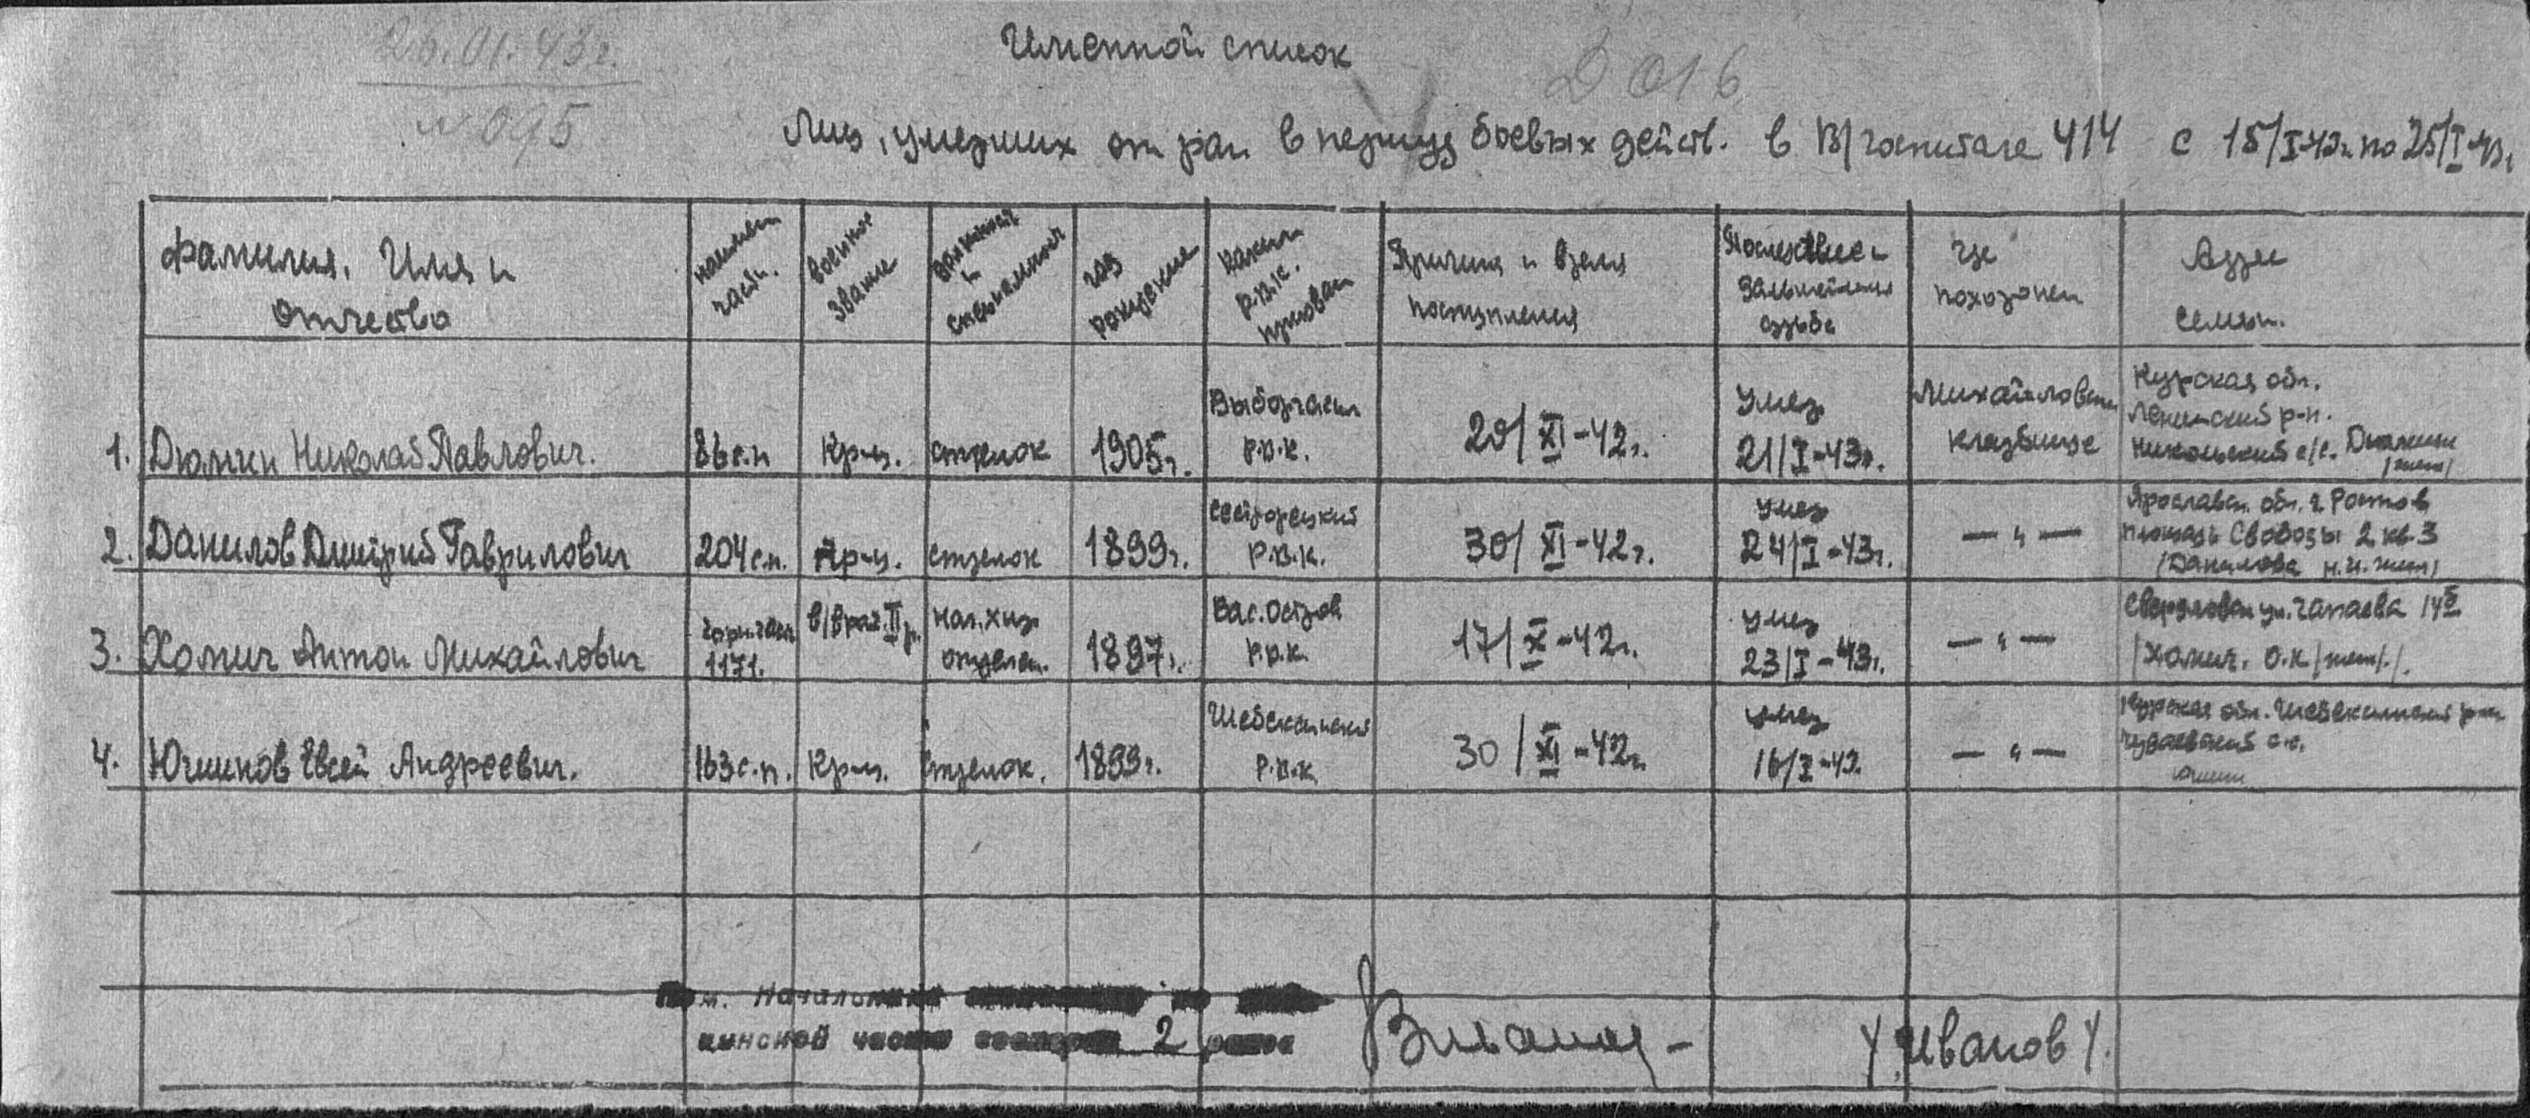 26.01.43г.
Именной список
№ 095
Д 016
Лиц, умерших от ран в период боевых действ. в В/госпитале 414 с 15/I-43г. по 25/I-43г.
Фамилия, Имя и отчество
наимен. части.
военное звание
должность и специальность
год рождение
каким Р.В.К. призван
Причина и время поступления
Последствие и дальнейшая судьба
где похоронен
Адрес семьи.
1. Дюмин Николай Павлович. 86 с.п Кр-ц. стрелок 1905г. Выборгский Р.В.К. 20/XI-42г. Умер 21/I-43г. Михайловском кладбище Курская обл. Ленинский р-н. Никольский с/с. Дюмина /жена/
2. Данилов Дмитрий Гаврилович 204 с.п. Кр-ц. стрелок 1899г. Сестрорецкий Р.В.К. 30/XI-42г. умер 24/I-43г. — " — Ярославск. обл. г. Ростов площадь Свободы 2 кв. 3 /Данилова Н.И. жена/
3. Хомич Антон Михайлович 1171. в/врач. II р. нач. хир. отделен. 1897г. Вас. Остров Р.В.К. 17/X-42г. умер 23/I-43г. — " — Свердловск ул. Чапаева 14 /Хомич. О.К /жена/.
4. Юшинов Евсей Андреевич. 163 с.п. Кр-ц. Стрелок. 1899г. Шебекинский Р.В.К 30/XI-42г. умер 16/I-43. — " — Курская обл. Шебекинский р-н с.с.
Пом. Начальника
цинской части 2
/Иванов/.